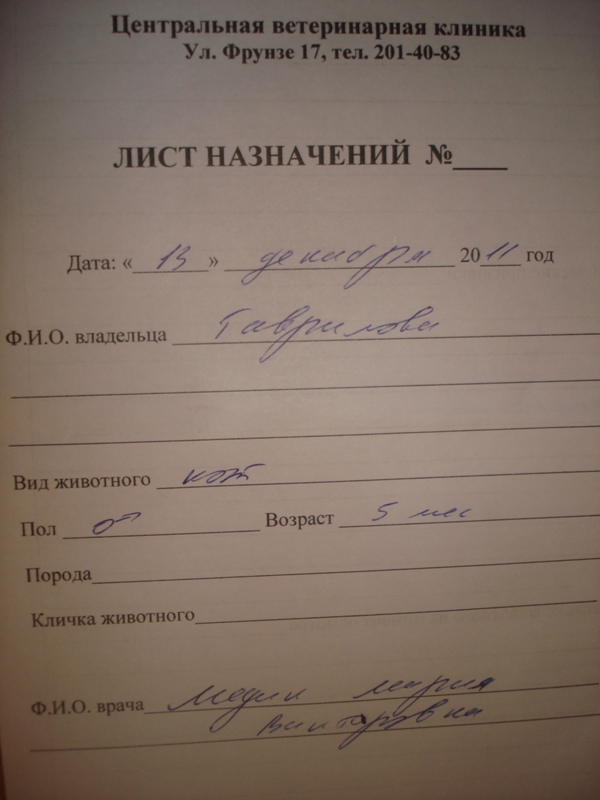 Центральная ветеринарная клиника
Ул. Фрунзе 17, тел. 201-40-83
ЛИСТ НАЗНАЧЕНИЙ №____
Дата: « 13 » декабря 2011 год
Ф.И.О. владельца Гаврилова
Вид животного кот
Пол ♂ Возраст 5 мес
Порода
Кличка животного
Ф.И.О. врача Мария
Викторовна